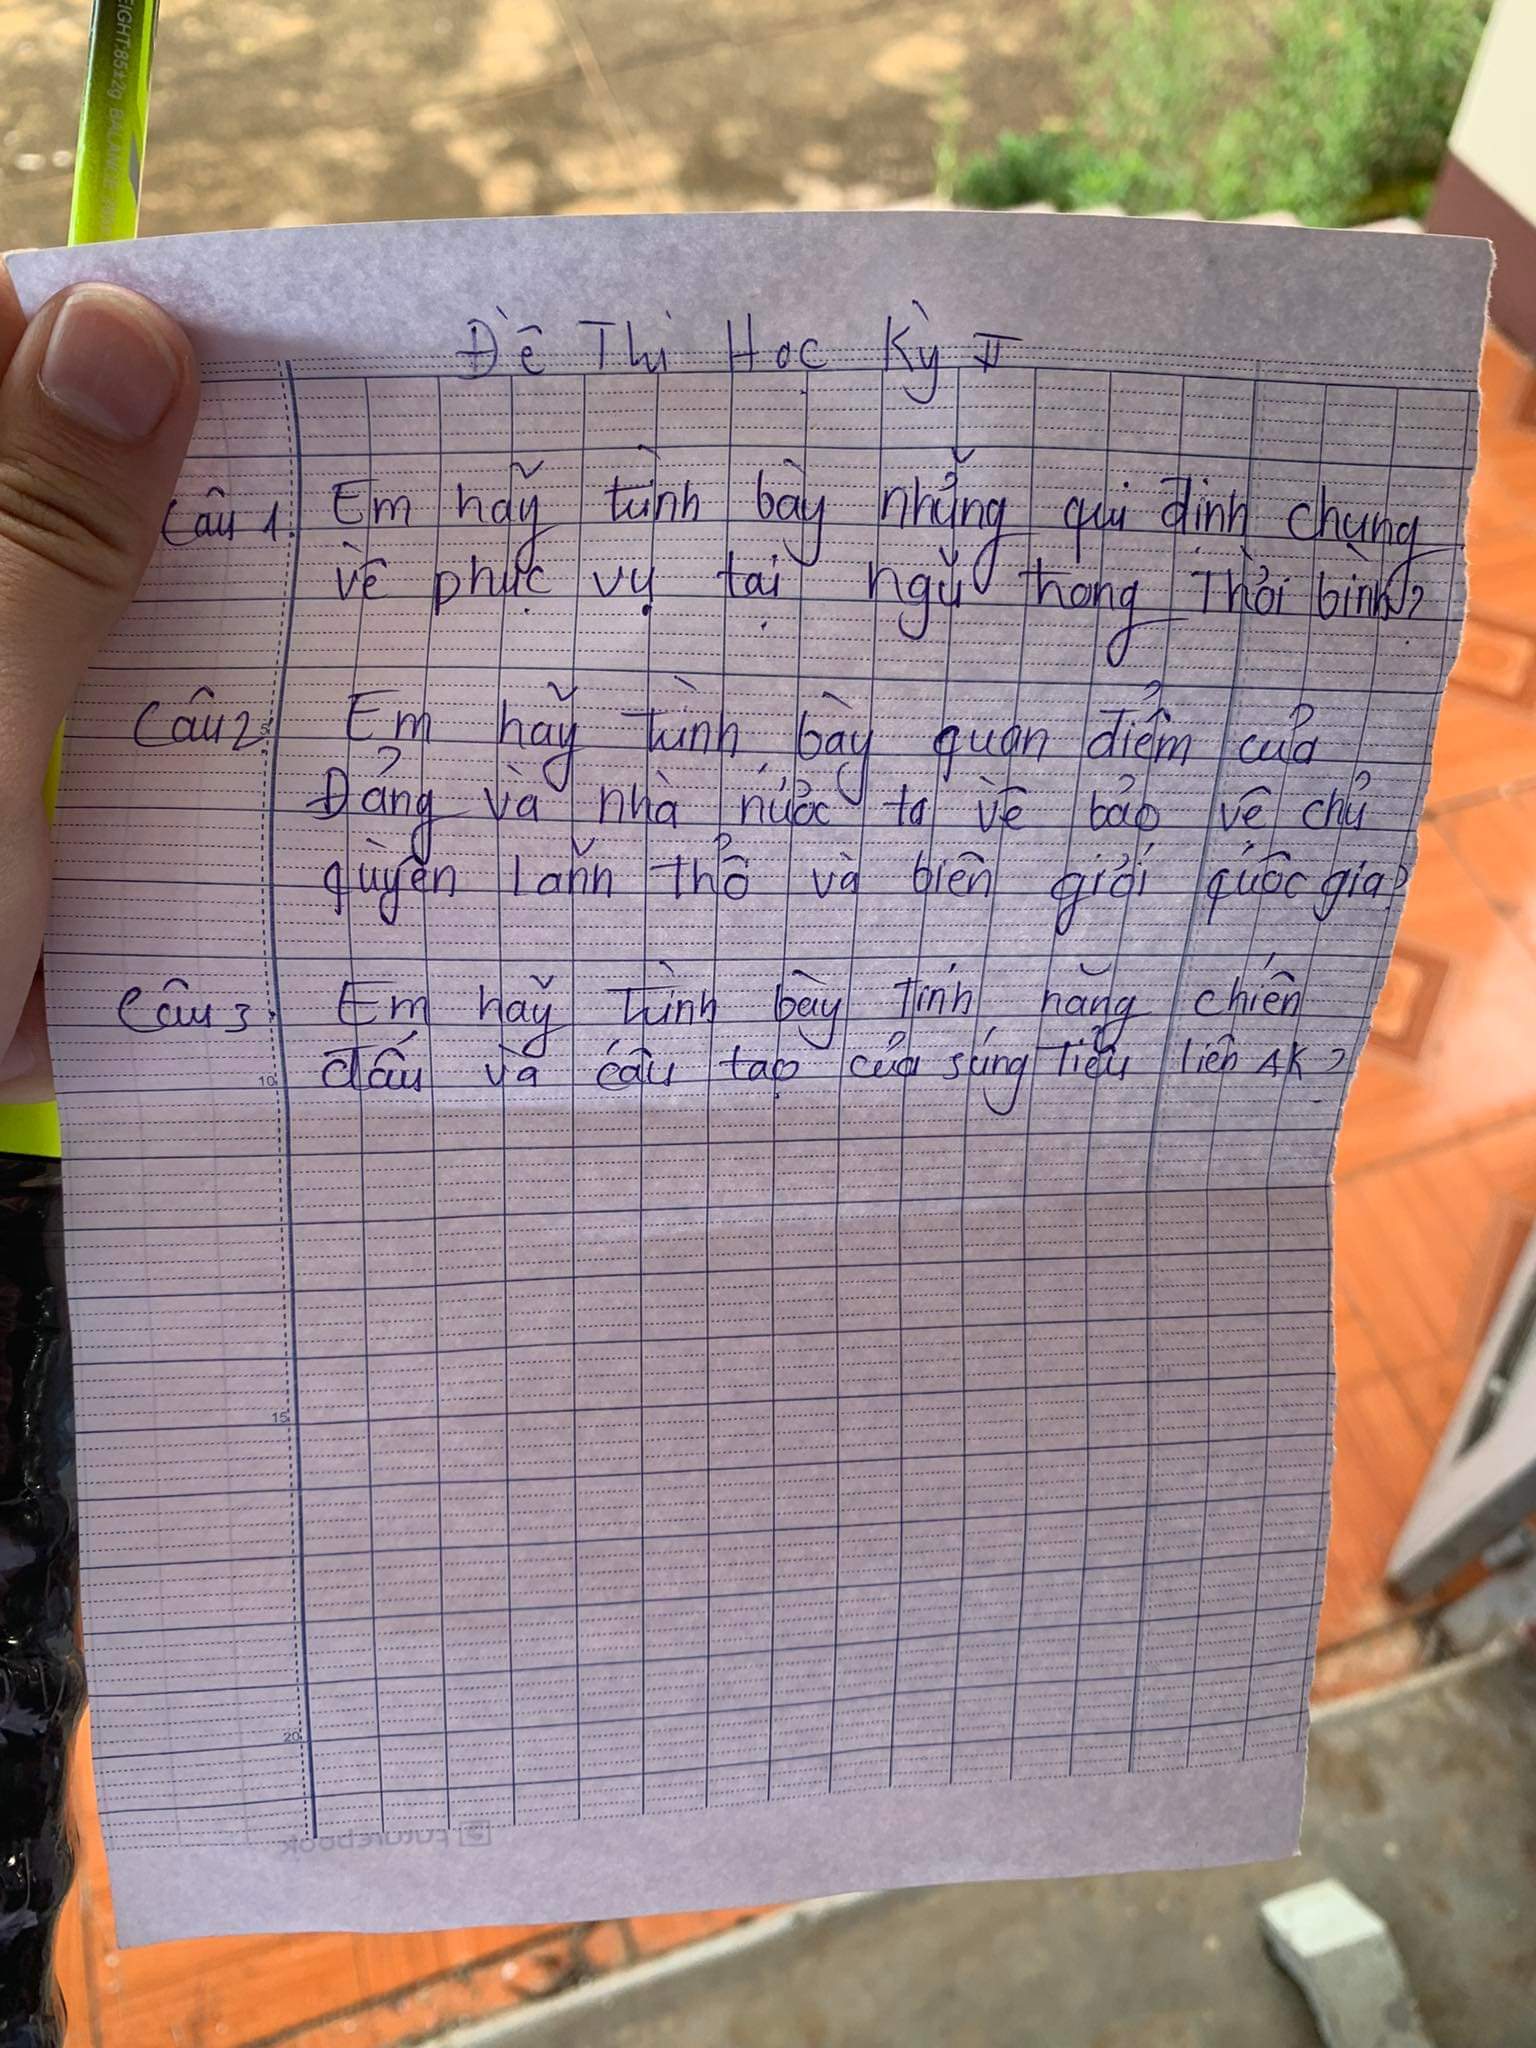 EIGHT:85±2g BALANCE
Đề Thi Học Kỳ II
Câu 1. Em hãy trình bày những qui định chung
về phục vụ tại ngũ trong Thời bình?
Câu 2: Em hãy trình bày quan điểm của
Đảng và nhà nước ta về bảo vệ chủ
quyền Lãnh thổ và biên giới quốc gia?
Câu 3. Em hãy trình bày tính năng chiến
10
đấu và cấu tạo của súng tiểu liên AK?
15
20
Futurebook